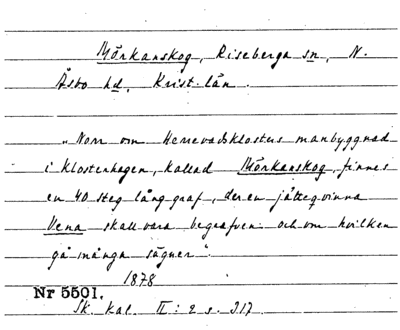 Mörkanskog, Riseberga sn, N.
Åsbo hd, Krist. län.
"Norr om Herrevadsklosters manbyggnad
i Klosterhagen, kallad Mörkanskog, finnes
en 40 steg lång graf, der en jätteqvinna
Vena skall vara begrafven och om hvilken
gå många sägner".
1878
Nr 5501.
Sk. Kal. II: 2 s. 317